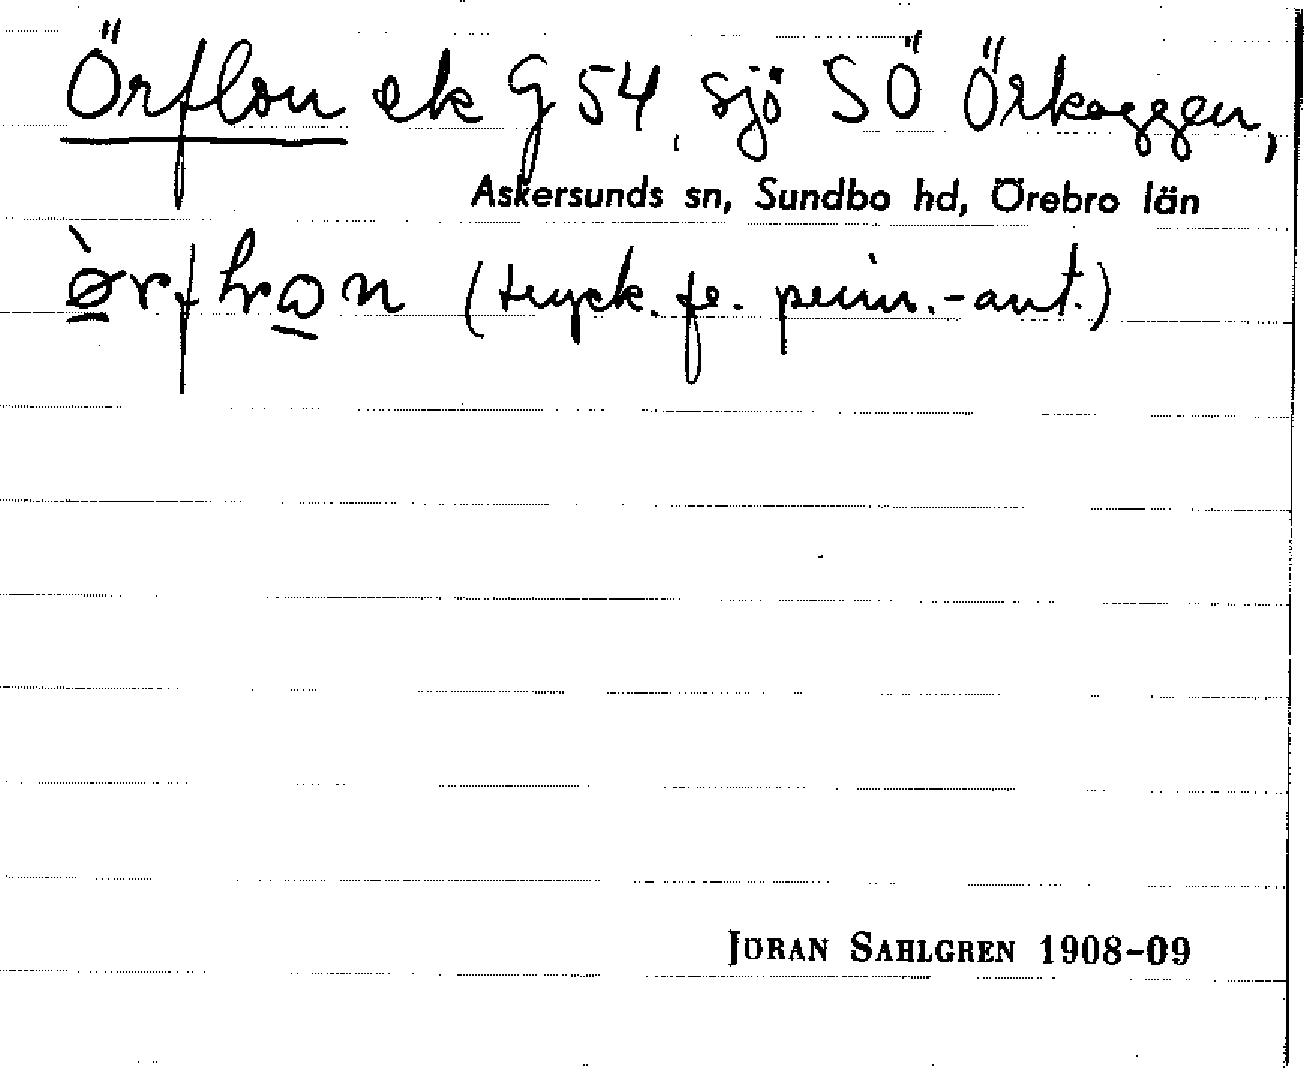 Örflon ek G 54, sjö SÖ Örkaggen,
Askersunds sn, Sundbo hd, Örebro län
(tryck. fr. prim.-ant.)
JÖRAN SAHLGREN 1908-09